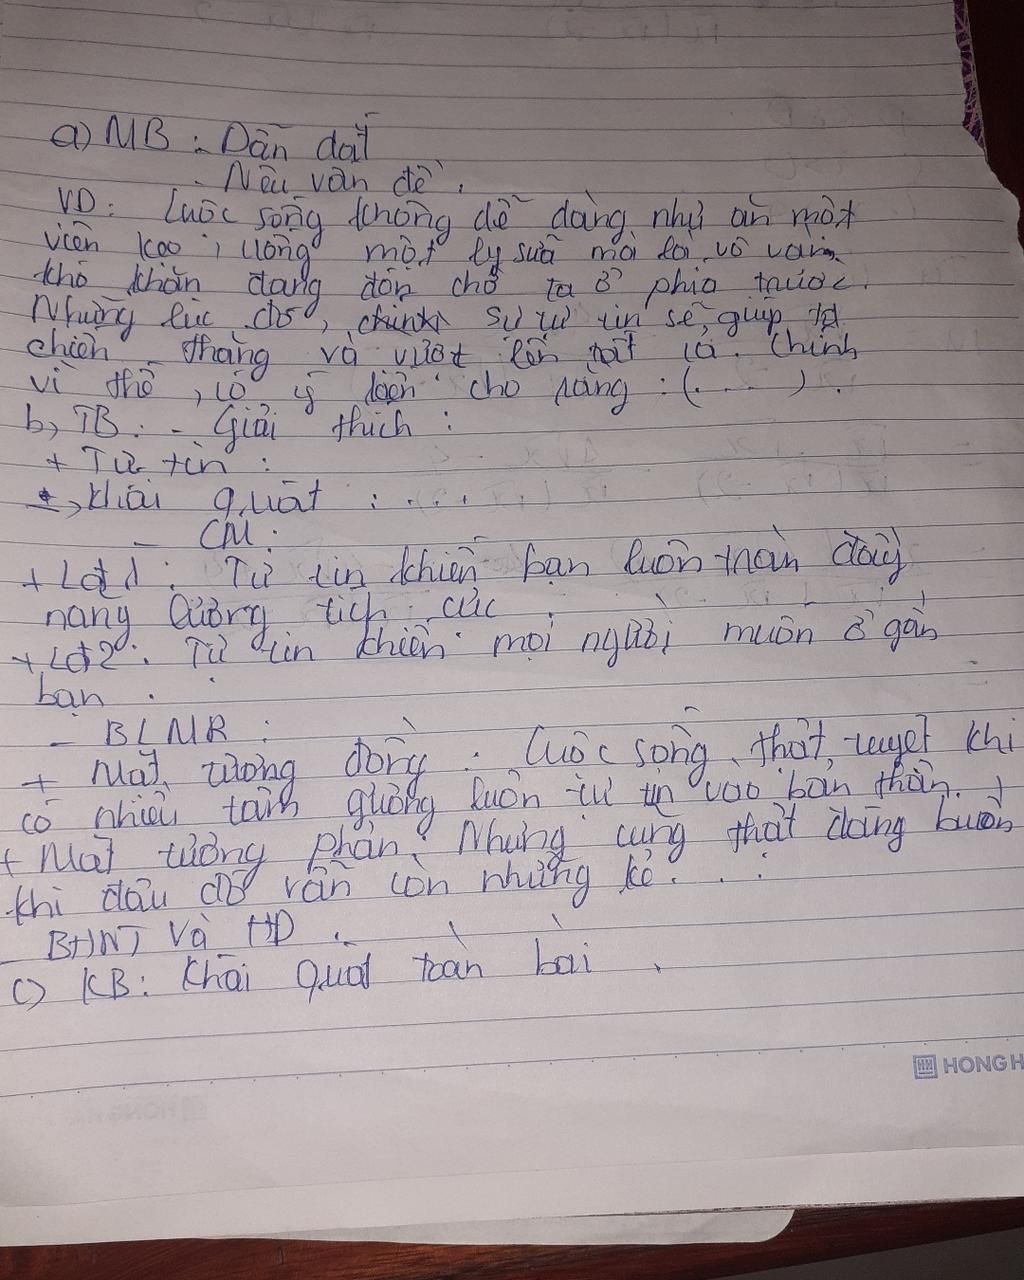 a) MB : Dẫn dắt
- Nêu vấn đề.
VD: Cuộc sống không dễ dàng như ăn một
viên kẹo, uống một ly sữa mà là vô vàn
khó khăn đang đón chờ ta ở phía trước.
Những lúc đó, chính sự tự tin sẽ giúp ta
chiến thắng và vượt lên tất cả. Chính
vì thế, có ý kiến cho rằng : (. . . .) .
b, TB: - Giải thích :
+ Tự tin :
=> khái quát : . . .
- CM :
+ Lđ1 : Tự tin khiến bạn luôn tràn đầy
năng lượng tích cực.
+ Lđ2 : Tự tin khiến mọi người muốn ở gần
bạn .
- BLMR :
+ Mặt tương đồng : Cuộc sống thật tuyệt khi
có nhiều tấm gương luôn tự tin vào bản thân.
+ Mặt tương phản: Nhưng cũng thật đáng buồn
khi đâu đó vẫn còn những kẻ . . .
- BHNT và HĐ .
c) KB: Khái quát toàn bài .
HONG H